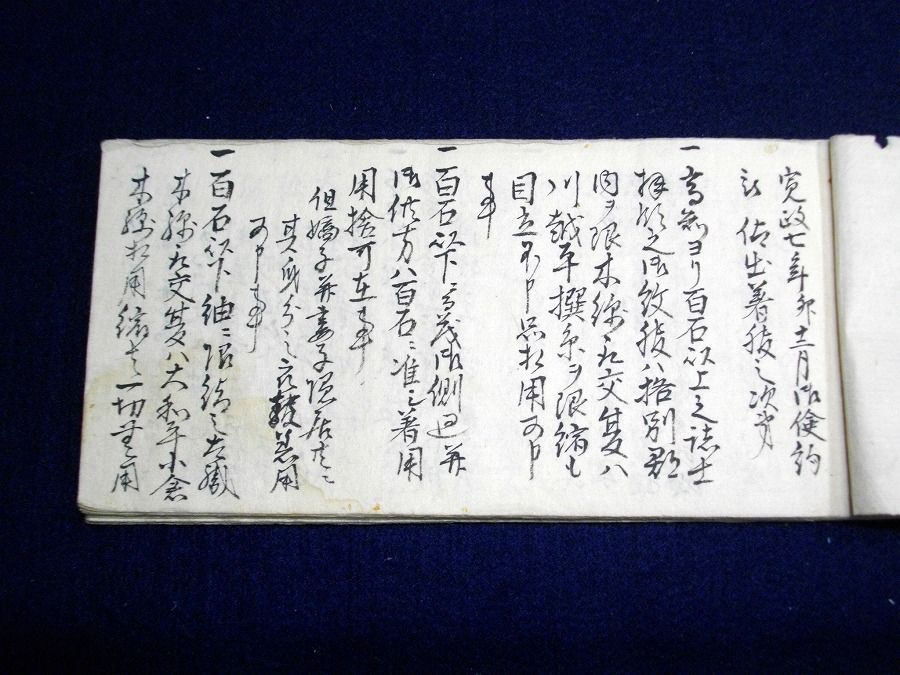 寛政七年卯十二月御倹約
被 仰出着服之次第
一高知ヨリ百石以上之諸士
拝領之御紋服ハ格別郡
内ヲ限木綿取交夏ハ
川越平撰糸ヲ限縮も
目立不申品相用可申
事
一百石以下ニ而茂御側廻并
御供方ハ百石ニ准シ着用
用捨可在事
但嫡子并妻子隠居共ニ
其身分之衣類着用
可申事
一百石以下紬ニ限結之太織
木綿取交夏ハ大和平小倉
木綿相用縮者一切無用